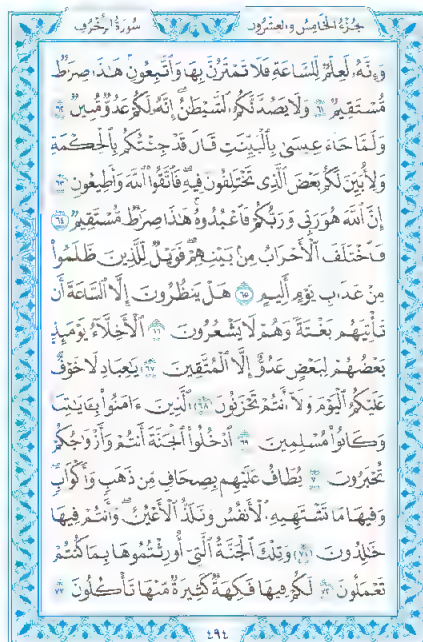 سُورَةُ الزُّخْرُفِ الجُزْءُ الخَامِسُ وَالعِشْرُونَ
وَإِنَّهُۥ لَعِلْمٌ لِّلسَّاعَةِ فَلَا تَمْتَرُنَّ بِهَا وَٱتَّبِعُونِ هَـٰذَا صِرَٰطٌ
مُّسْتَقِيمٌ ٦١ وَلَا يَصُدَّنَّكُمُ ٱلشَّيْطَـٰنُ إِنَّهُۥ لَكُمْ عَدُوٌّ مُّبِينٌ ٦٢
وَلَمَّا جَآءَ عِيسَىٰ بِٱلْبَيِّنَـٰتِ قَالَ قَدْ جِئْتُكُم بِٱلْحِكْمَةِ
وَلِأُبَيِّنَ لَكُم بَعْضَ ٱلَّذِى تَخْتَلِفُونَ فِيهِ فَٱتَّقُوا۟ ٱللَّهَ وَأَطِيعُونِ ٦٣
إِنَّ ٱللَّهَ هُوَ رَبِّى وَرَبُّكُمْ فَٱعْبُدُوهُ هَـٰذَا صِرَٰطٌ مُّسْتَقِيمٌ ٦٤
فَٱخْتَلَفَ ٱلْأَحْزَابُ مِنۢ بَيْنِهِمْ فَوَيْلٌ لِّلَّذِينَ ظَلَمُوا۟
مِنْ عَذَابِ يَوْمٍ أَلِيمٍ ٦٥ هَلْ يَنظُرُونَ إِلَّا ٱلسَّاعَةَ أَن
تَأْتِيَهُم بَغْتَةً وَهُمْ لَا يَشْعُرُونَ ٦٦ ٱلْأَخِلَّآءُ يَوْمَئِذٍۭ
بَعْضُهُمْ لِبَعْضٍ عَدُوٌّ إِلَّا ٱلْمُتَّقِينَ ٦٧ يَـٰعِبَادِ لَا خَوْفٌ
عَلَيْكُمُ ٱلْيَوْمَ وَلَآ أَنتُمْ تَحْزَنُونَ ٦٨ ٱلَّذِينَ ءَامَنُوا۟ بِـَٔايَـٰتِنَا
وَكَانُوا۟ مُسْلِمِينَ ٦٩ ٱدْخُلُوا۟ ٱلْجَنَّةَ أَنتُمْ وَأَزْوَٰجُكُمْ
تُحْبَرُونَ ٧٠ يُطَافُ عَلَيْهِم بِصِحَافٍ مِّن ذَهَبٍ وَأَكْوَابٍ
وَفِيهَا مَا تَشْتَهِيهِ ٱلْأَنفُسُ وَتَلَذُّ ٱلْأَعْيُنُ وَأَنتُمْ فِيهَا
خَـٰلِدُونَ ٧١ وَتِلْكَ ٱلْجَنَّةُ ٱلَّتِىٓ أُورِثْتُمُوهَا بِمَا كُنتُمْ
تَعْمَلُونَ ٧٢ لَكُمْ فِيهَا فَـٰكِهَةٌ كَثِيرَةٌ مِّنْهَا تَأْكُلُونَ ٧٣
٤٩٤